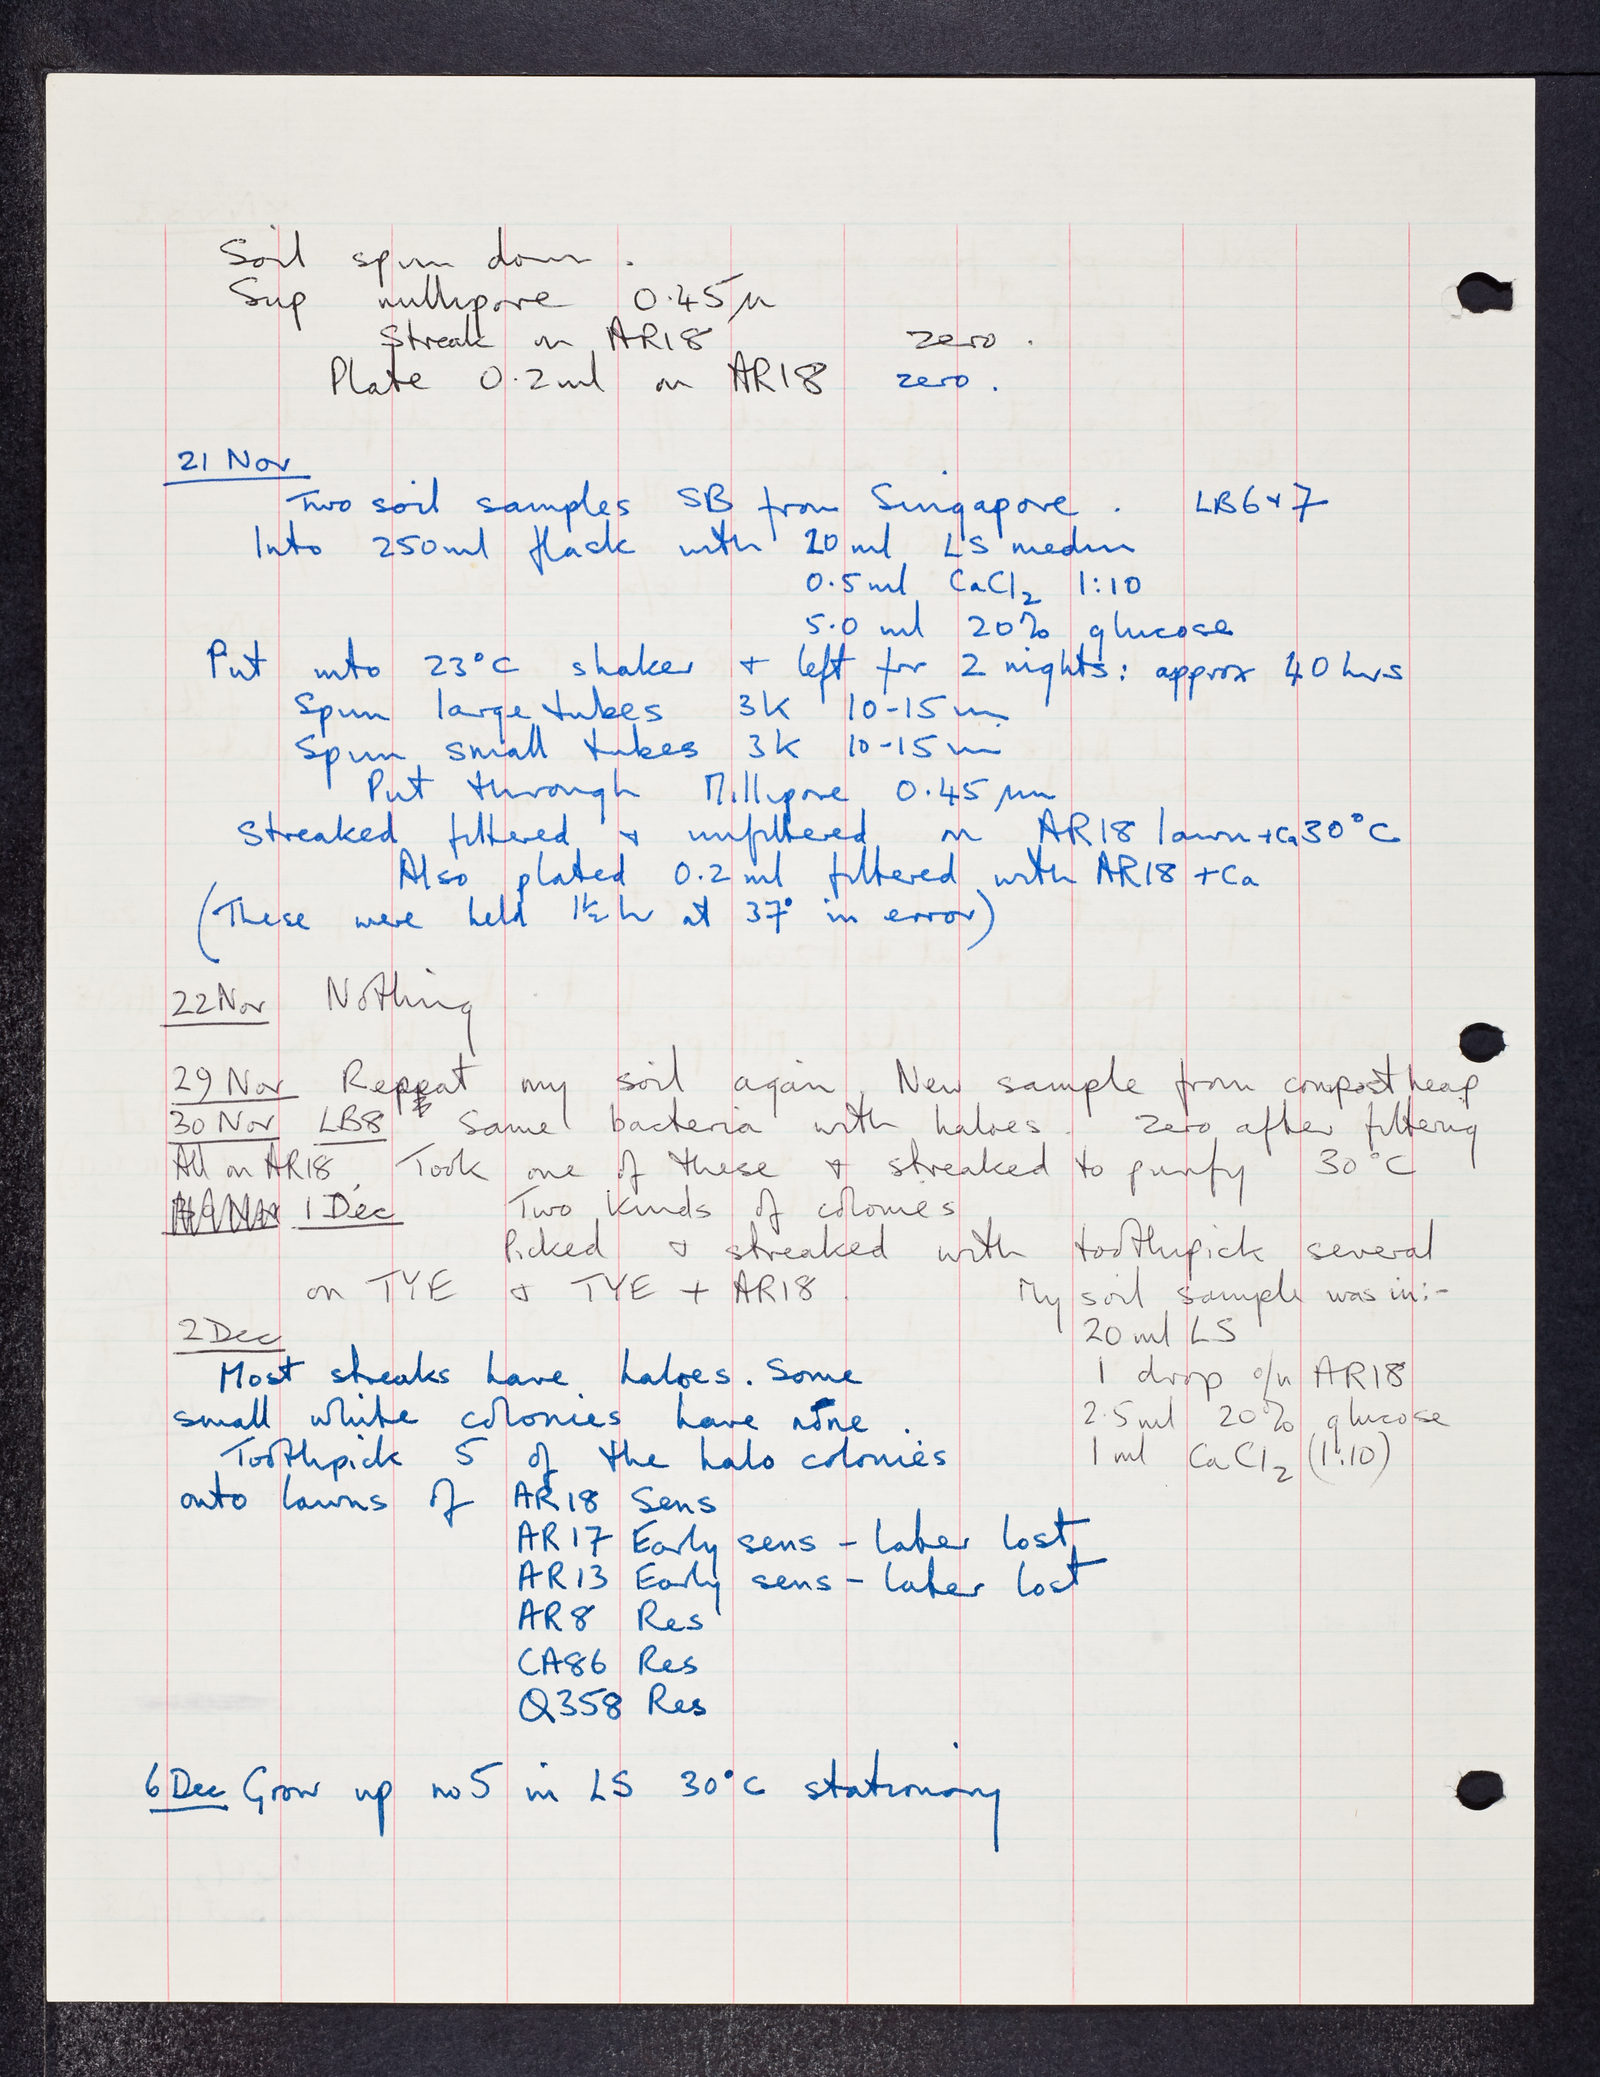 Soil spun down .
Sup millipore 0.45 μ
Streak on AR18 zero .
Plate 0.2 ml on AR18 zero .
21 Nov
Two soil samples SB from Singapore . LB6 + 7
Into 250 ml flask with 20 ml LS medium
0.5 ml CaCl2 1:10
5.0 ml 20% glucose
Put into 23°C shaker + left for 2 nights: approx 40 hrs
Spun large tubes 3K 10-15 min
Spun small tubes 3K 10-15 min
Put through Millipore 0.45 μm
Streaked filtered + unfiltered on AR18 lawn + Ca 30°C
Also plated 0.2 ml filtered with AR18 + Ca
(These were held 1½ h at 37° in error)
22 Nov Nothing
29 Nov Repeat my soil again. New sample from compost heap
30 Nov LB8 Same bacteria with haloes. Zero after filtering
All on AR18. Took one of these + streaked to purify 30°C
1 Dec Two kinds of colonies
Picked + streaked with toothpick several
on TYE + TYE + AR18 .
My soil sample was in:-
20 ml LS
1 drop o/n AR18
2.5 ml 20% glucose
1 ml CaCl2 (1:10)
2 Dec
Most streaks have haloes. Some
small white colonies have none .
Toothpick 5 of the halo colonies
onto lawns of AR18 Sens
AR17 Early sens - later lost
AR13 Early sens - later lost
AR8 Res
CA86 Res
Q358 Res
6 Dec Grow up no 5 in LS 30°C stationary